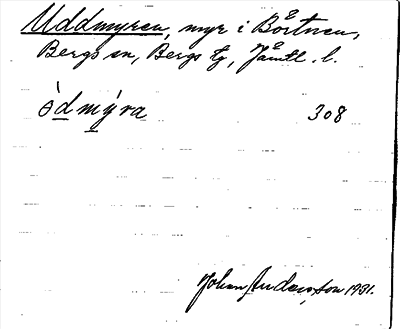 Uddmyren, myr i Börtnen,
Bergs sn, Bergs tg, Jämtl. l.
ò̀dmýra 308
Johan Andersson 1931.